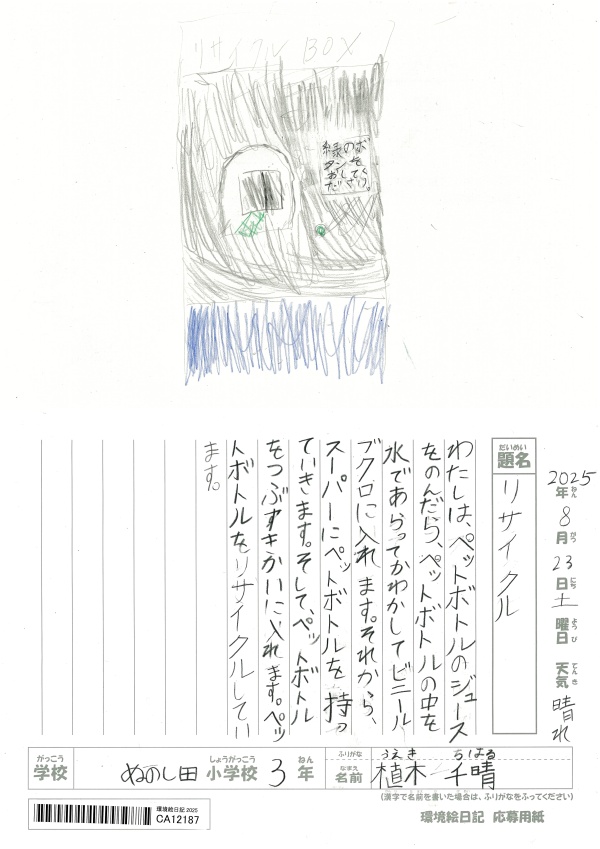 リサイクル BOX
緑のボ
タンを
おしてく
ださい。
2025年ねん8月がつ23日にち土曜日ようび 天気てんき 晴れ
だいめい
題名
リサイクル
わたしは、ペットボトルのジュース
をのんだら、ペットボトルの中を
水であらってかわかしてビニール
ブクロに入れます。それから、
スーパーにペットボトルを持っ
ていきます。そして、ペットボトル
をつぶすキかいに入れます。ペッ
トボトルをリサイクルしてい
ます。
がっこう しょうがっこう ねん
学校 ぬのし田 小学校 3年
ふりがな うえき ちはる
なまえ
名前 植木 千晴
(漢字で名前を書いた場合は、ふりがなをふってください)
環境絵日記 2025
CA12187
環境絵日記 応募用紙